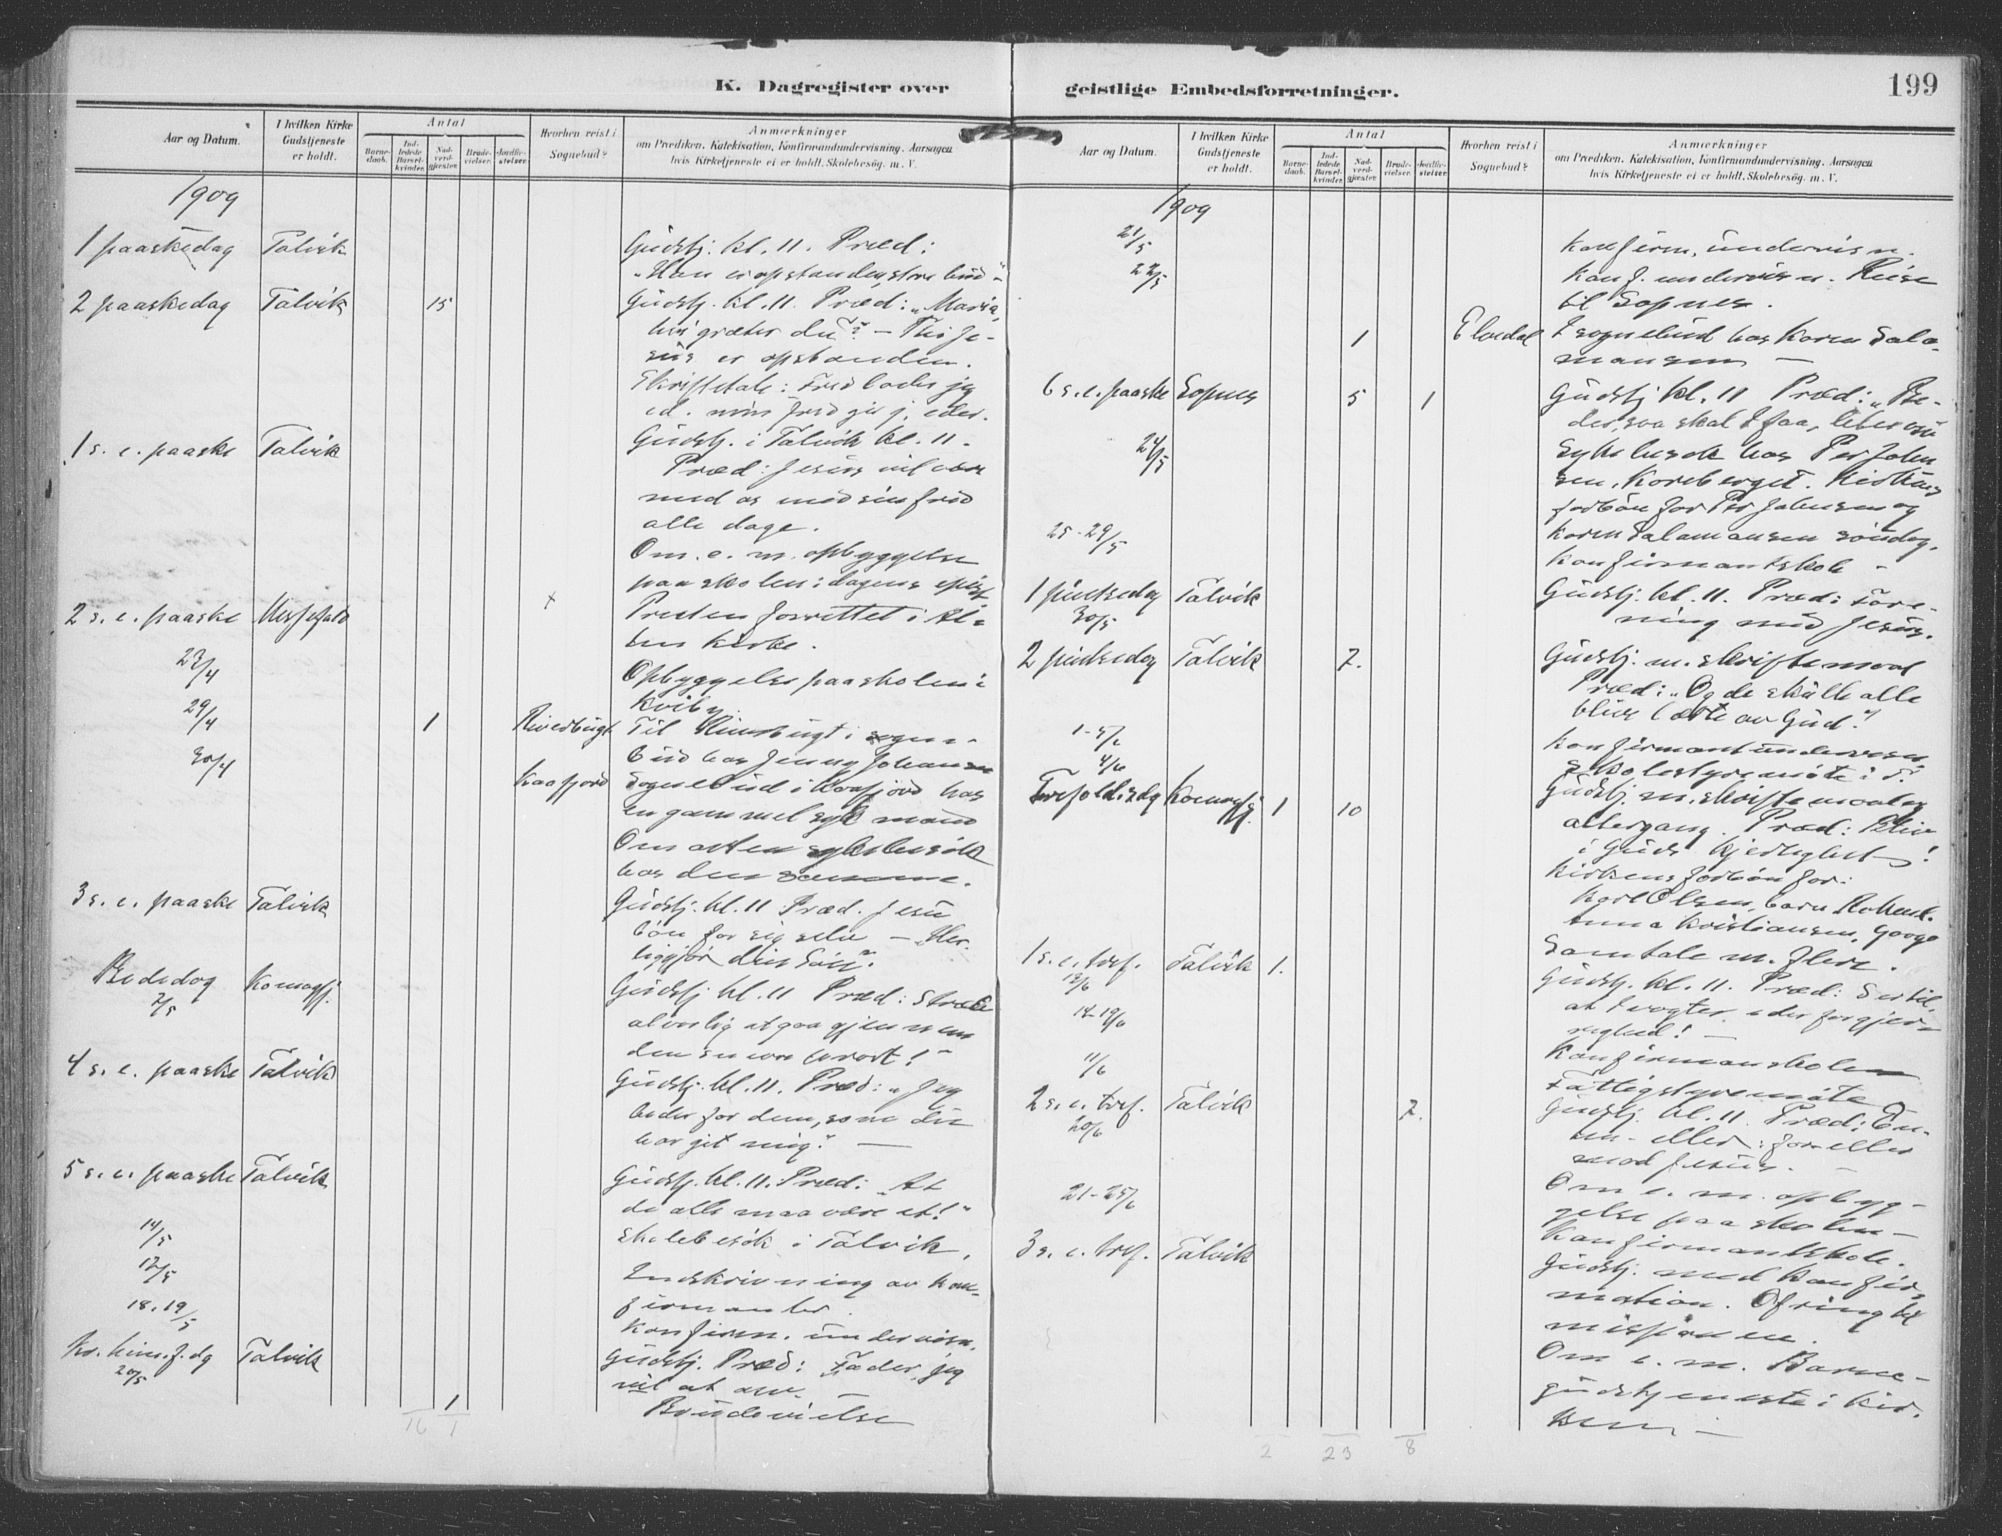 K. Dagregister over
Aar og Datum.
I hvilken Kirke Gudstjeneste er holdt.
Antal
Barnedaab.
Indledede Barselkvinder.
Nadverdgjester.
Brudevielser.
Jordfæstelser.
Hvorhen reist i Sognebud?
Anmærkninger
om Prædiken, Katekisation, Konfirmandundervisning, Aarsagen
hvis Kirketjeneste ei er holdt, Skolebesøg. m. V.
1909
1 paaskedag Talvik Gudstj. kl. 11. Præd:
"Han er opstanden, store bud"
2 paaskedag Talvik 15 Gudstj. kl. 11. Præd: "Maria,
hvi græter du?" – Thi Je-
sus er opstanden.
Skriftetale: Fred lader jeg
ed. min fred gir j. eder.
1 s. e. paaske Talvik Gudstj. i Talvik kl. 11.
Præd: Jesus vil være
med os med sin fred
alle dage.
Om e. m. opbyggelse
paa skolen: dagens epist
2 s. e. paaske x Presten forrettet i Al-
ten kirke.
23/4 Opbyggelse paa skolen i
Kviby.
29/4 1 Til i sogne-
bud hos Jenny Johansen
30/4 Kaafjord Sognebud i Kaafjord hos
en gammel syk mand
Om aften sykebesök
hos den samme.
3 s. e. paaske Talvik Gudstj. kl. 11 Præd. Jesu
bön for sig selv – "Her-
liggjör din Sön".
Bededag 7/5 Komagfj. Gudstj. kl. 11 Præd: Stræb
alvorlig at gaa gjennem
den snevre port!"
4 s. e. paaske Talvik Gudstj. kl. 11. Præd: "Jeg
beder for dem, som du
har git mig" –
5 s. e. paaske Talvik Gudstj. kl. 11. Præd: "At
de alle maa være et!"
14/5 Skolebesök i Talvik.
17/5 Indskrivning av kon-
firmanter.
18. 19/5 Konfirm. undervisn.
Kr. him. f. dg 20/5 Talvik Gudstj. Præd: Fader, jeg
vil at
1 Brudevielse
16 1
geistlige Embedsforretninger.
199
Aar og Datum.
I hvilken Kirke Gudstjeneste er holdt.
Antal
Barnedaab.
Indledede Barselkvinder.
Nadverdgjester.
Brudevielser.
Jordfæstelser.
Hvorhen reist i Sognebud?
Anmærkninger
om Prædiken, Katekisation, Konfirmandundervisning, Aarsagen
hvis Kirketjeneste ei er holdt, Skolebesøg. m. V.
1909
21/5 Konfirm. undervisn.
22/5 Konf. undervisn. Reise
til Sopnes.
1 Elvedal I sognebud hos Karen Sala-
mansen –
6 s. e. paaske Sopnes 5 1 Gudstj kl. 11 Præd: "Be-
der, saa skal I faa,
24/5 Sykebesök hos Per Johan
sen, Kirkens
forbön for Per Johnsen og
Karen Salamansen söndag.
25-29/5 Konfirmantskole –
1 pintsedag 30/5 Talvik Gudstj. kl. 11. Præd: Fore-
ning med Jesus.
2 pintsedag Talvik 7. Gudstj. m. skriftemaal
Præd: "Og de skulle alle
blive lærte av Gud."
1-5/6 Konfirmantundervisn
4/6 Skolestyremöte i T.
Trefold. s dg Komagfj. 1 10 Gudstj. m. skriftemaal og
altergang. Præd: Bliv
i Guds kjerlighet!
Kirkens forbön for:
Karl Olsen, barn
Anna Kristiansen,
Samtale m. flere.
1 s. e. tref. 13/6 Talvik 1. Gudstj. kl. 11. Præd: Se til,
at I vogter eder for gjer-
righed! –
14-19/6 Konfirmanskolen
11/6 Fattigstyremöte
2 s. e. tref. 20/6 Talvik 7. Gudstj. kl. 11. Præd: En-
ten – eller: for eller
mod Jesus. –
Om e. m. opbyg-
gelse paa skolen –
21-25/6 Konfirmantskole.
3 s. e. tref. Talvik Gudstj. med konfir-
mation. Ofring til
missjonen.
Om e. m. Barne-
gudstjeneste i kir-
ken. –
2 23 8